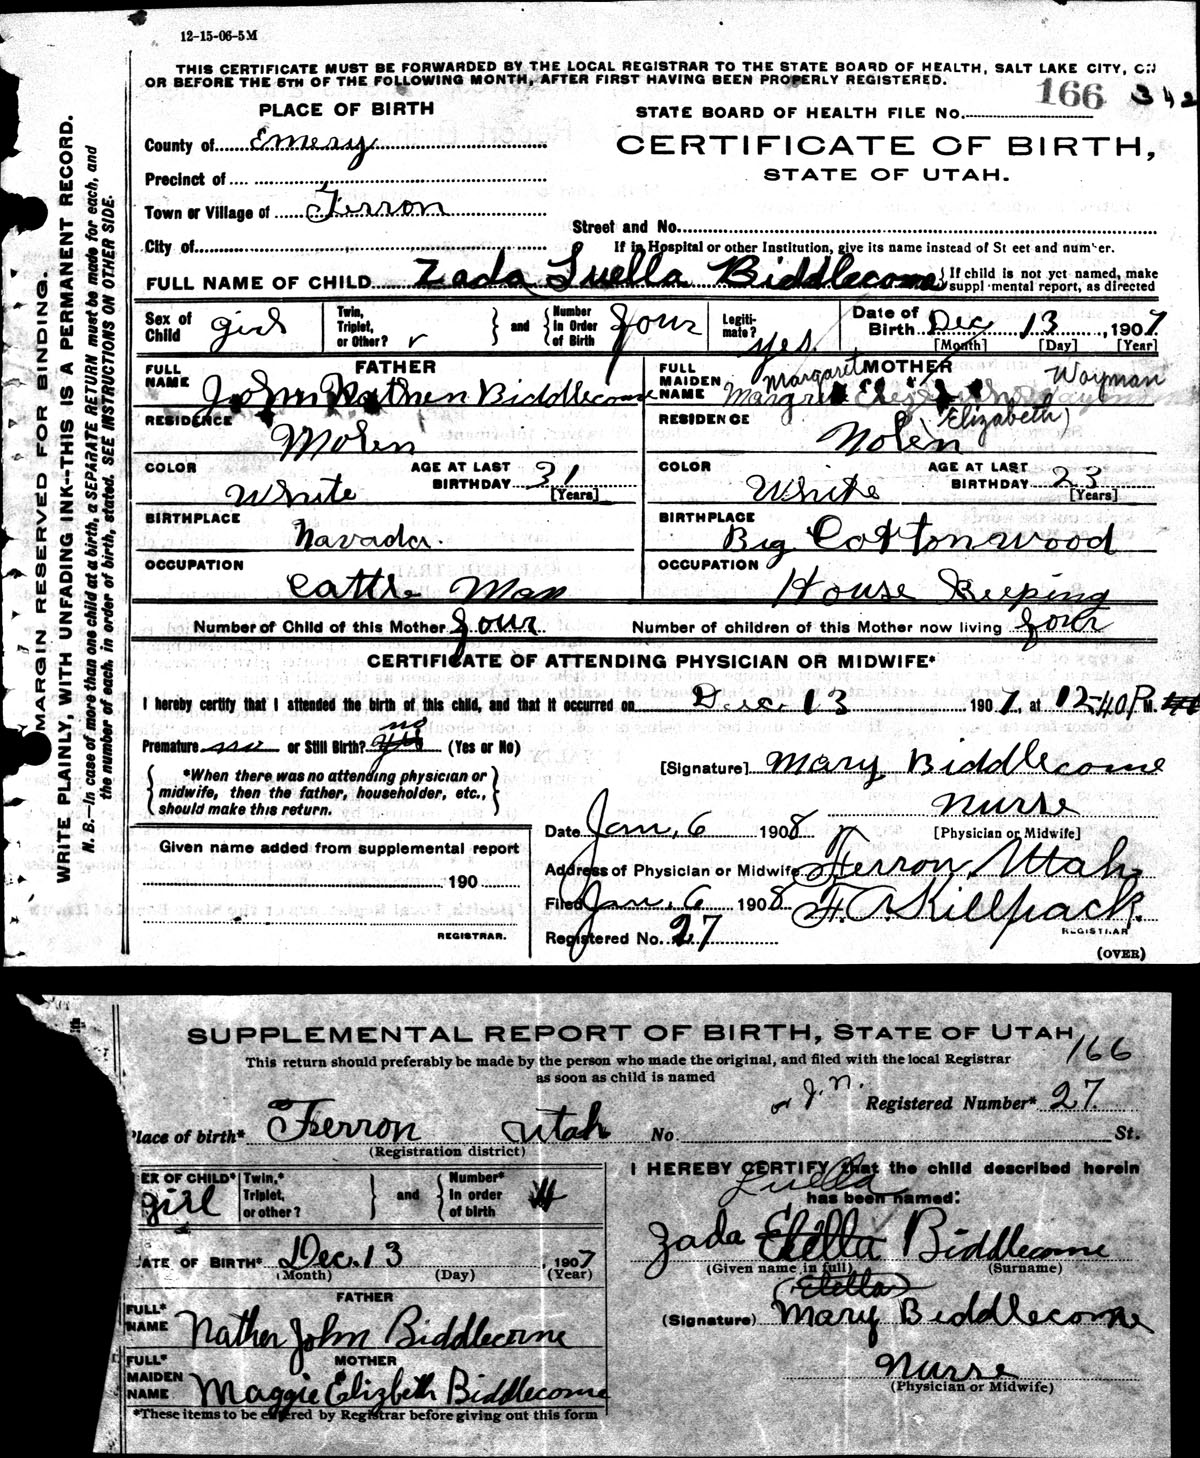 12-15-06-5M
THIS CERTIFICATE MUST BE FORWARDED BY THE LOCAL REGISTRAR TO THE STATE BOARD OF HEALTH, SALT LAKE CITY, ON
OR BEFORE THE 5TH OF THE FOLLOWING MONTH, AFTER FIRST HAVING BEEN PROPERLY REGISTERED.
MARGIN RESERVED FOR BINDING.
WRITE PLAINLY, WITH UNFADING INK--THIS IS A PERMANENT RECORD.
N. B.—In case of more than one child at a birth, a SEPARATE RETURN must be made for each, and
the number of each, in order of birth, stated. SEE INSTRUCTIONS ON OTHER SIDE.
PLACE OF BIRTH
166 342
STATE BOARD OF HEALTH FILE No.
County of Emery
CERTIFICATE OF BIRTH,
STATE OF UTAH.
Precinct of
Town or Village of Ferron
Street and No.
City of
If in Hospital or other Institution, give its name instead of St eet and number.
FULL NAME OF CHILD Zada Luella Biddlecome
If child is not yet named, make
suppl mental report, as directed
Sex of Child girl
Twin, Triplet, or Other?
and Number in Order of Birth four
Legiti-mate? yes.
Date of Birth Dec 13, 1907
[Month] [Day] [Year]
FATHER
FULL NAME John Nathen Biddlecome
RESIDENCE Molen
COLOR White AGE AT LAST BIRTHDAY 31 [Years]
BIRTHPLACE Navada.
OCCUPATION Cattle Man
MOTHER
FULL MAIDEN NAME Margaret Wayman
(Elizabeth)
RESIDENCE Molen
COLOR White AGE AT LAST BIRTHDAY 23 [Years]
BIRTHPLACE Big Cottonwood
OCCUPATION House Keeping
Number of Child of this Mother four Number of children of this Mother now living four
CERTIFICATE OF ATTENDING PHYSICIAN OR MIDWIFE*
I hereby certify that I attended the birth of this child, and that it occurred on Dec. 13 1907, at 12-40 P M.
Premature no or Still Birth? no (Yes or No)
*When there was no attending physician or
midwife, then the father, householder, etc.,
should make this return.
[Signature] Mary Biddlecome
nurse
[Physician or Midwife]
Date Jan, 6 1908
Given name added from supplemental report
190
REGISTRAR.
Address of Physician or Midwife Ferron, Utah,
Filed Jan, 6 1908 F. C. Killpack.
REGISTRAR
Registered No. 27
(OVER)
SUPPLEMENTAL REPORT OF BIRTH, STATE OF UTAH
166
This return should preferably be made by the person who made the original, and filed with the local Registrar
as soon as child is named
or J. N.
Registered Number* 27
lace of birth* Ferron Utah No. St.
(Registration district)
ER OF CHILD* girl
Twin,* Triplet, or other?
and Number* in order of birth 4
ATE OF BIRTH* Dec. 13, 1907
(Month) (Day) (Year)
FATHER
FULL* NAME Nathen John Biddlecome
MOTHER
FULL* MAIDEN NAME Maggie Elizbeth Biddlecome
*These items to be entered by Registrar before giving out this form
I HEREBY CERTIFY that the child described herein
has been named:
Luella
Zada Elella Biddlecome
(Given name in full) (Surname)
(Elella)
(Signature) Mary Biddlecome
nurse
(Physician or Midwife)